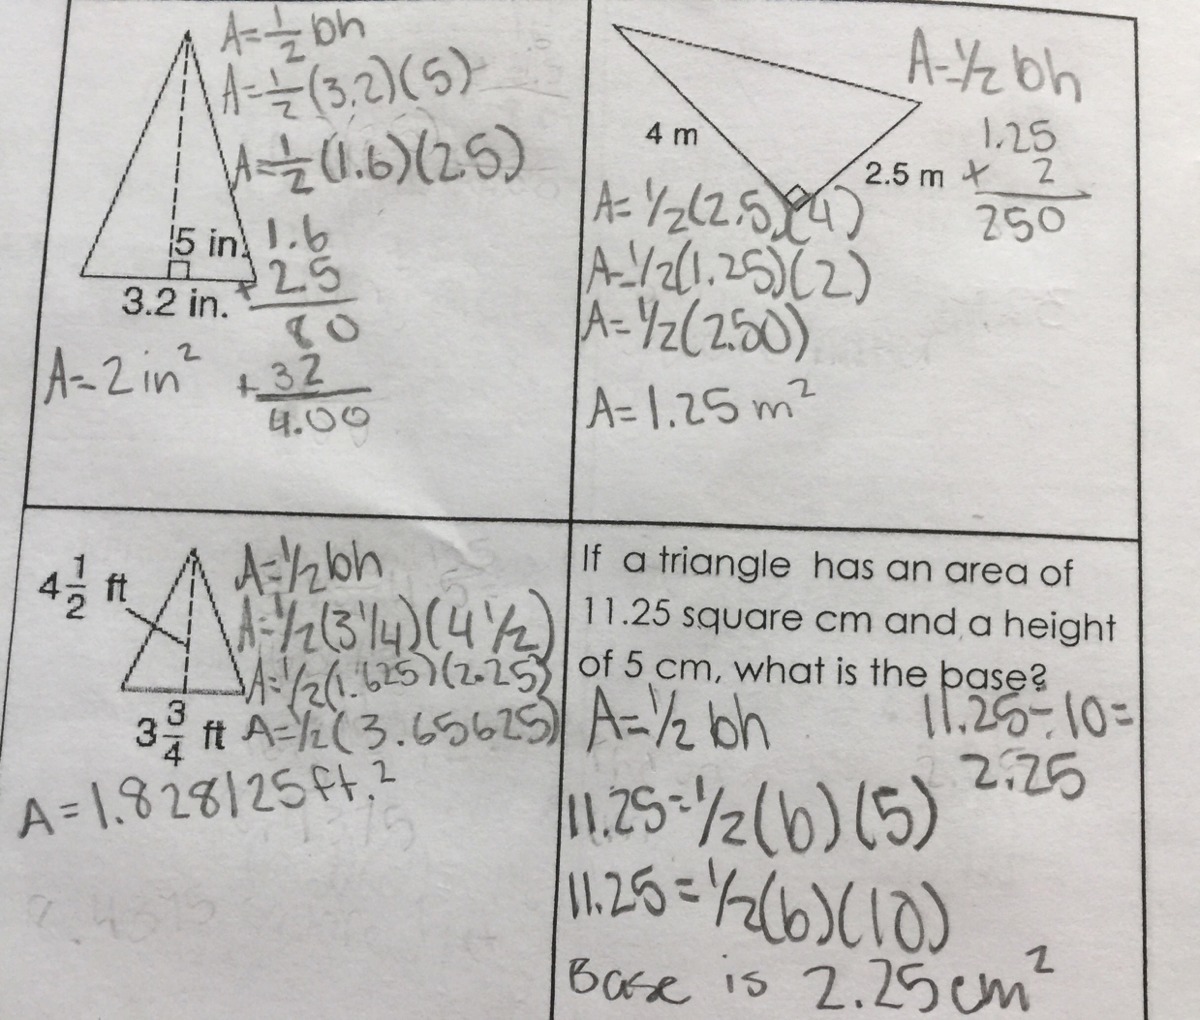 A=1/2 bh
A=1/2(3.2)(5)
A=1/2(1.6)(2.5)
5 in.
3.2 in.
1.6
+ 2.5
80
+ 32
4.00
A=2in²
A=1/2 bh
4 m
2.5 m
1.25
x 2
250
A=1/2(2.5)(4)
A=1/2(1.25)(2)
A=1/2(2.50)
A=1.25 m²
4 1/2 ft
3 3/4 ft
A=1/2bh
A=1/2(3 1/4)(4 1/2)
A=1/2(1.625)(2.25)
A=1/2(3.65625)
A=1.828125ft.²
If a triangle has an area of
11.25 square cm and a height
of 5 cm, what is the base?
A=1/2 bh
11.25÷10=
2.25
11.25=1/2(b)(5)
11.25=1/2(b)(10)
Base is 2.25cm²